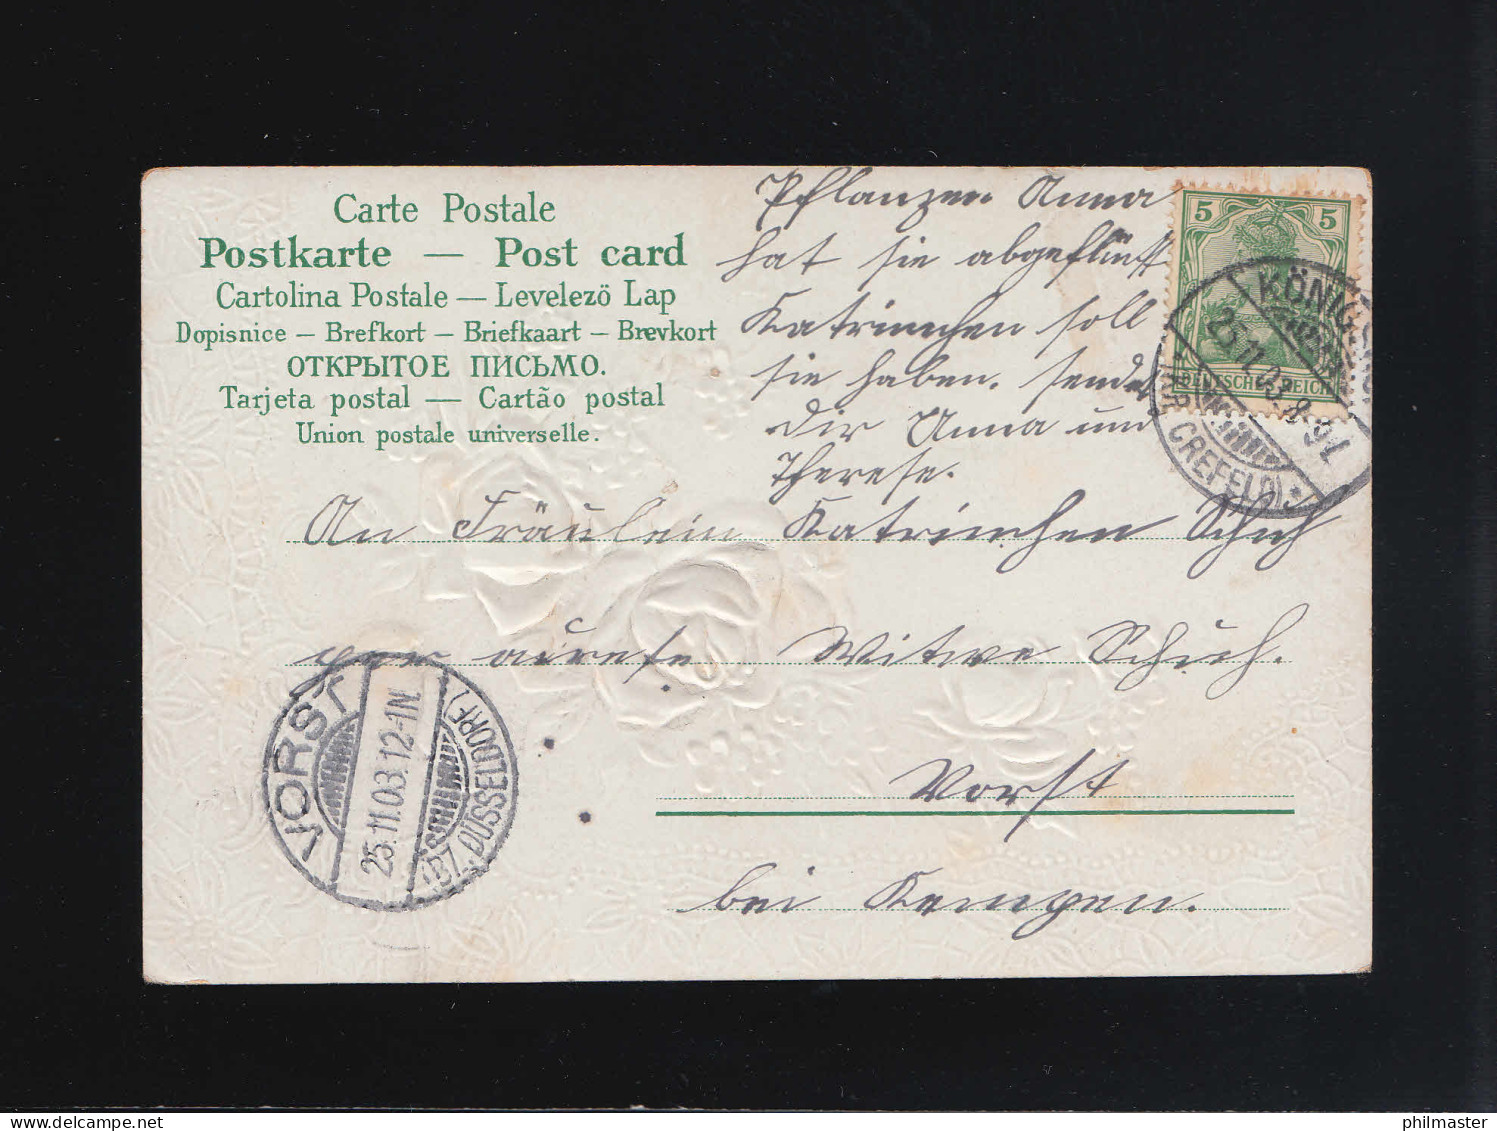 Carte Postale
Postkarte — Post card
Cartolina Postale — Levelezö Lap
Dopisnice – Brefkort – Briefkaart – Brevkort
ОТКРЫТОЕ ПИСЬМО.
Tarjeta postal — Cartão postal
Union postale universelle.
Pflanzen Anna
hat sie
Katrinchen soll
sie haben. sende
dir Anna und
Therese.
5 5
DEUTSCHES REICH
25.11.03. 8-9V.
CREFELD).*
An Fräulein Katrinchen Schuh
per adresse Witwe Schuh.
VORST
25.11.03.12-1N.
(BZ. DÜSSELDORF)
Vorst
bei Kempen.
philmaster